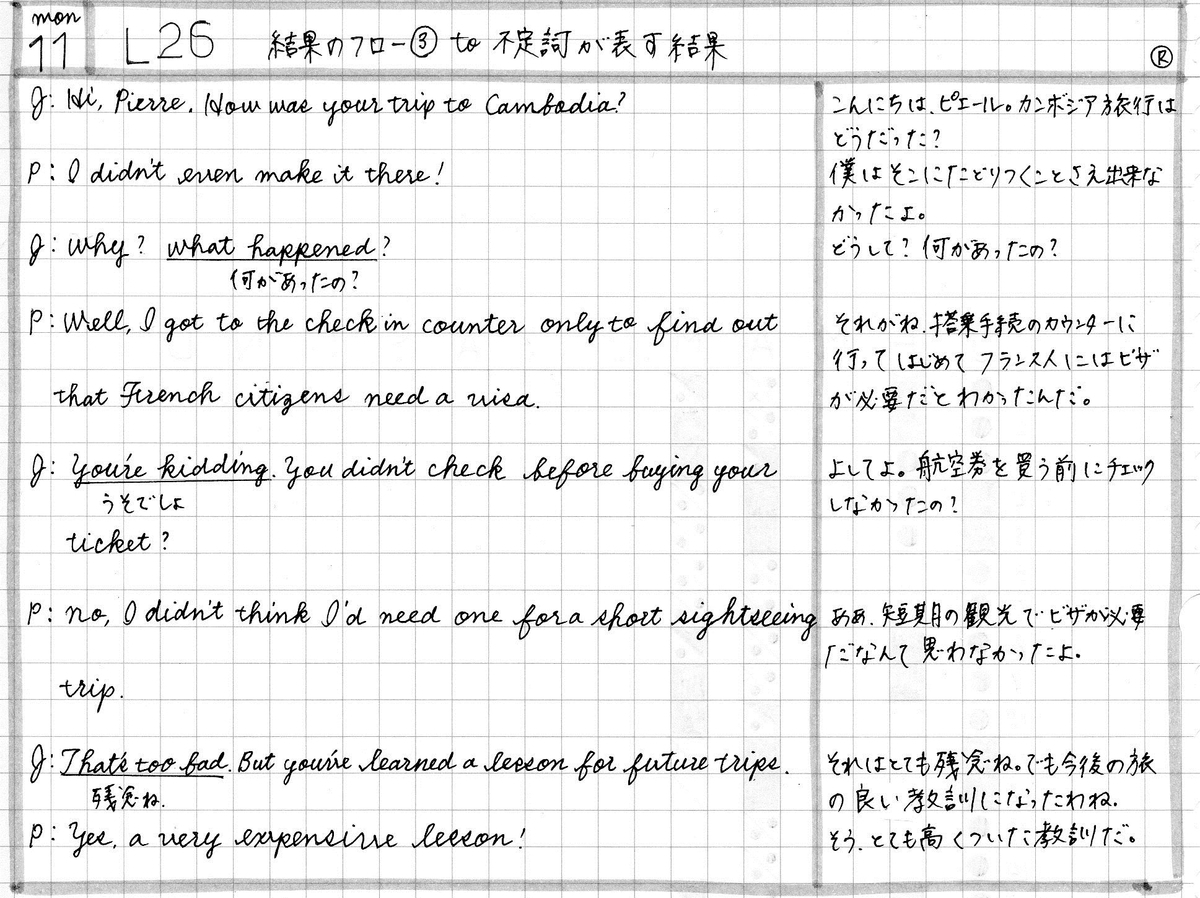 mon
11
L26 結果のフロー③ to 不定詞が表す結果
Ⓡ
J: Hi, Pierre. How was your trip to Cambodia?
こんにちは、ピエール。カンボジア旅行は
どうだった？
P: I didn't even make it there!
僕はそこにたどりつくことさえ出来な
かったよ。
J: Why? What happened?
何があったの？
どうして？何があったの？
P: Well, I got to the check in counter only to find out
that French citizens need a visa.
それがね、搭乗手続のカウンターに
行ってはじめてフランス人にはビザ
が必要だとわかったんだ。
J: You're kidding. You didn't check before buying your
うそでしょ
ticket?
よしてよ。航空券を買う前にチェック
しなかったの？
P: No, I didn't think I'd need one for a short sightseeing
trip.
ああ、短期の観光でビザが必要
だなんて思わなかったよ。
J: That's too bad. But you've learned a lesson for future trips.
残念ね.
それはとても残念ね。でも今後の旅
の良い教訓になったわね.
P: Yes, a very expensive lesson!
そう、とても高くついた教訓だ。